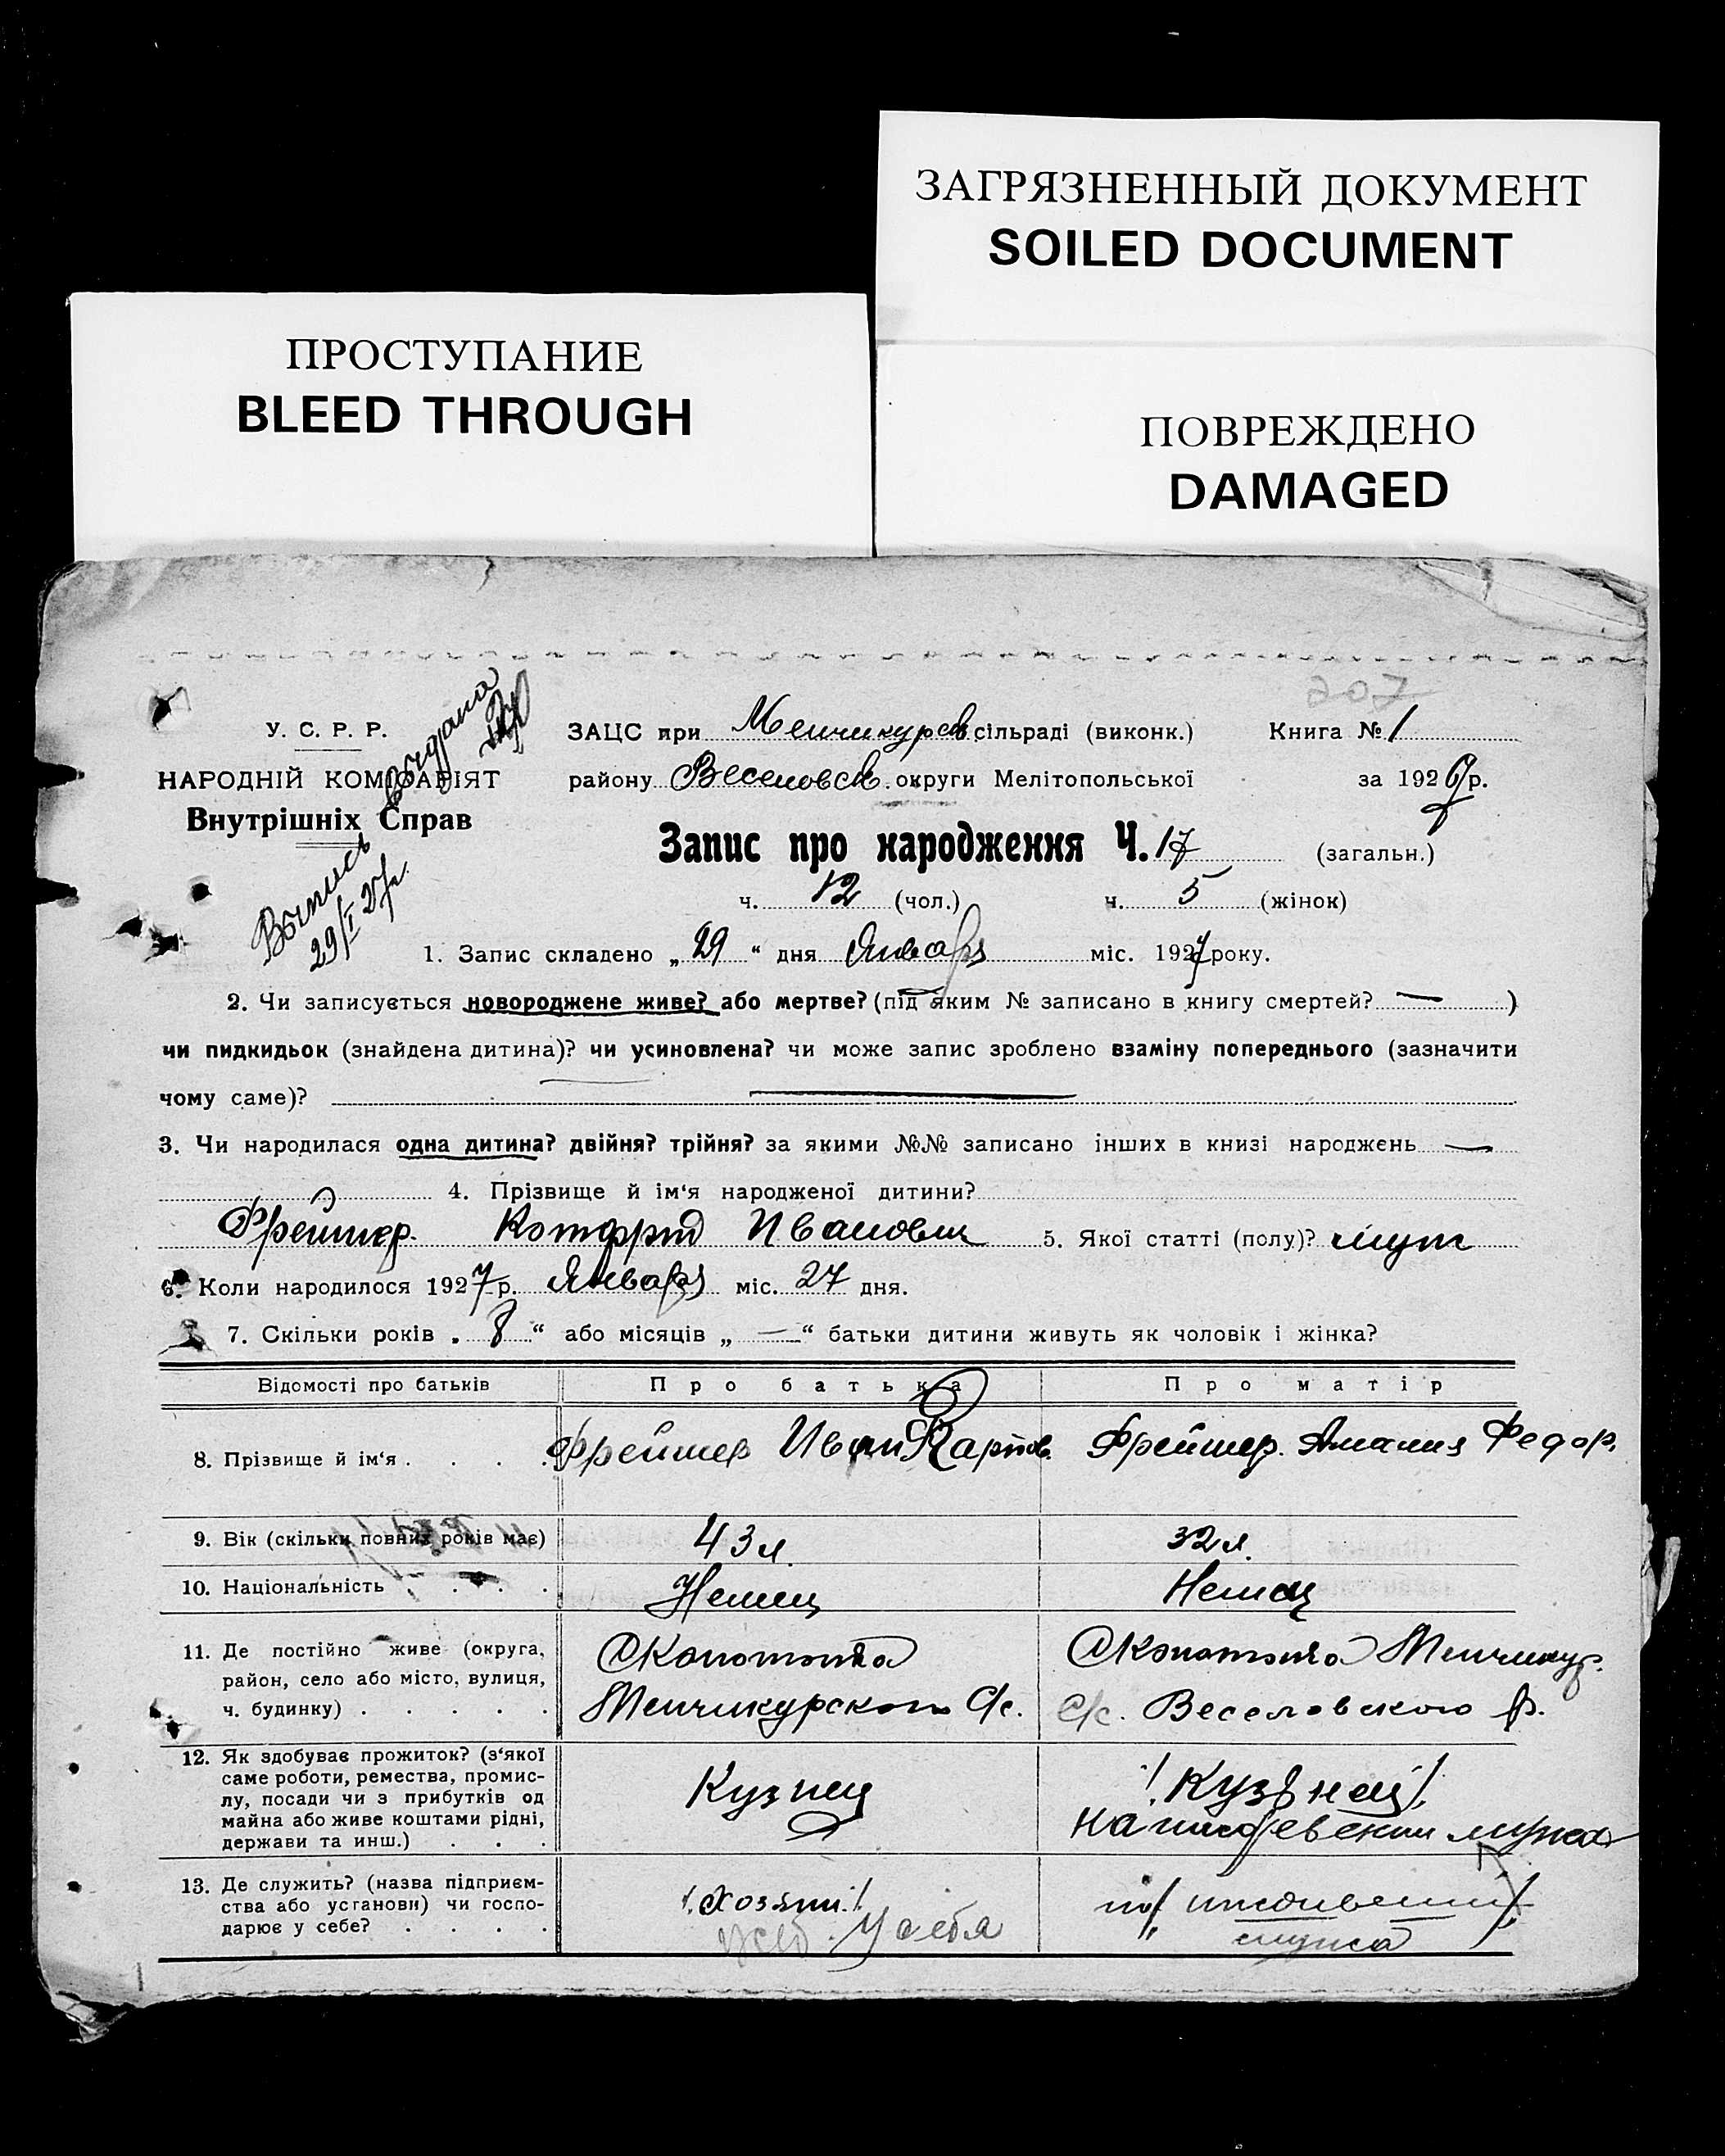 ЗАГРЯЗНЕННЫЙ ДОКУМЕНТ
SOILED DOCUMENT
ПРОСТУПАНИЕ
BLEED THROUGH
ПОВРЕЖДЕНО
DAMAGED
207
У. С. Р. Р.
НАРОДНІЙ КОМІСАРІЯТ
Внутрішніх Справ
Выпись выдана
29/I 27г.
ЗАЦС при Менчикуров сільраді (виконк.) Книга № 1
району Веселовск. округи Мелітопольської за 1927 р.
Запис про народження Ч. 17 (загальн.)
ч. 12 (чол.) ч. 5 (жінок)
1. Запис складено „ 29 “ дня Января міс. 1927 року.
2. Чи записується новороджене живе? або мертве? (під яким № записано в книгу смертей? — )
чи пидкидьок (знайдена дитина)? чи усиновлена? чи може запис зроблено взаміну попереднього (зазначити
чому саме)?
3. Чи народилася одна дитина? двійня? трійня? за якими №№ записано інших в книзі народжень —
4. Прізвище й ім‘я народженої дитини?
Фрейшер. Котфрид Иванович 5. Якої статті (полу)? муж
6. Коли народилося 1927 р. Января міс. 27 дня.
7. Скільки років „ 8 “ або місяців „ — “ батьки дитини живуть як чоловік і жінка?
Відомості про батьків Про батька Про матір
8. Прізвище й ім‘я . . . . Фрейшер Иван Карлов. Фрейшер. Амалия Федор.
9. Вік (скільки повних років має) 43 л. 32 л.
10. Національність . . . . Немец Немец
11. Де постійно живе (округа,
район, село або місто, вулиця,
ч. будинку) . . . . .
Менчикурского С/с.
Менчикур.
С/с. Веселовского р.
12. Як здобуває прожиток? (з‘якої
саме роботи, ремества, промис-
лу, посади чи з прибутків од
майна або живе коштами рідні,
держави та инш.) . . .
Кузнец
/Кузнец/
на иждевении мужа
13. Де служить? (назва підприєм-
ства або установи) чи госпо-
дарює у себе? . . . .
/Хозяин/
У себя
мужа